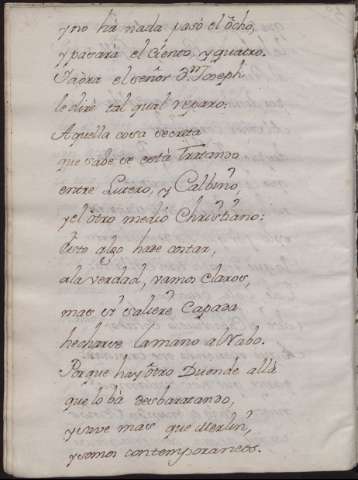 y no há nada pasó el ôcho,
y pasará el ciento, y quatro.
Y aôra el señor Dn. Joseph
le diré tal qual reparo:
Aquella cosa secreta
que sabe se está tratando
entre Lutero, y Calbino,
y el ôtro medio Christiano:
Esto algo haze cortar,
a la verdad, vamos claros,
mas si saliere Capada
hecharse la mano al Nabo.
Porque hay ôtro Duende allá
que lo bá desbaratando,
y save mas que Merlin,
y somos contemporaneos.